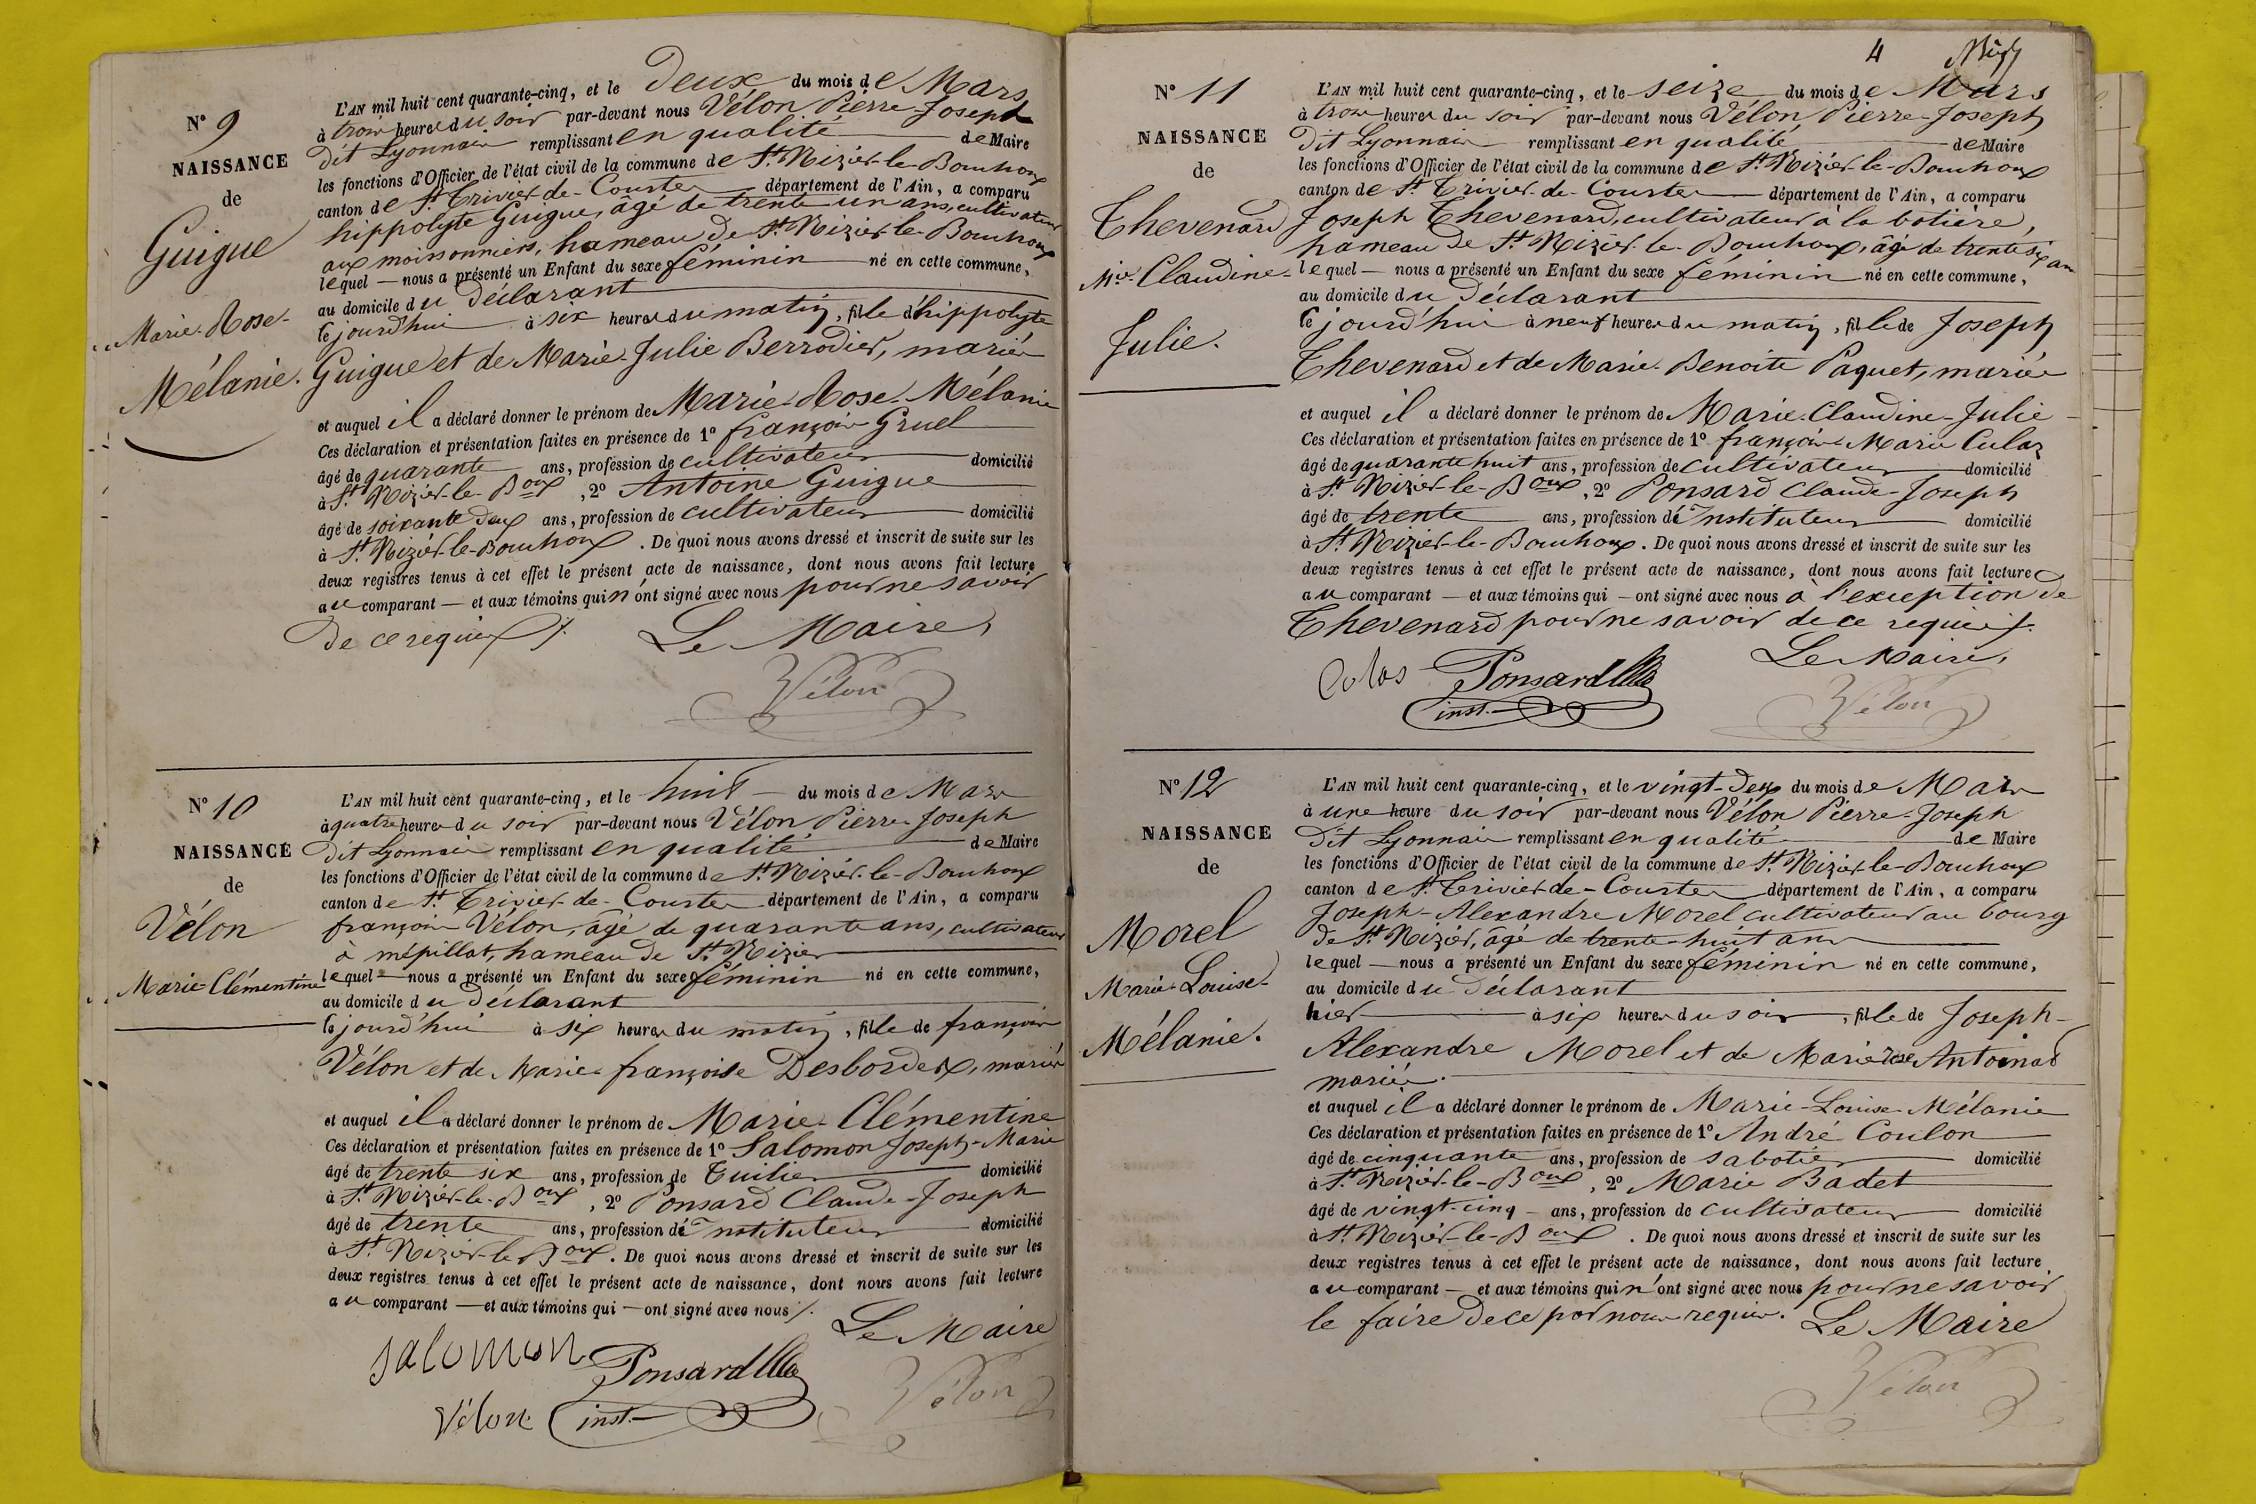 N° 9
NAISSANCE
de
Guigue
Marie-Rose-
Mélanie.
L'AN mil huit cent quarante-cinq, et le Deux du mois de Mars
à trois heures du soir par-devant nous Vélon Pierre-Joseph
dit Lyonnais remplissant en qualité de Maire
les fonctions d'Officier de l'état civil de la commune de St. Nizier-le-Bouchoux
canton de St. Trivier-de-Courtes département de l'Ain, a comparu
hippolyte Guigue, âgé de trente un ans, cultivateur
aux moissonniers, hameau de St. Nizier-le-Bouchoux
lequel — nous a présenté un Enfant du sexe féminin né en cette commune,
au domicile du Déclarant
ce jourd'hui à six heures du matin, fille d'hippolyte
Guigue et de Marie-Julie Berrodier, mariés
et auquel il a déclaré donner le prénom de Marie-Rose-Mélanie
Ces déclaration et présentation faites en présence de 1° françois Gruel
âgé de quarante ans, profession de cultivateur domicilié
à St. Nizier-le-Boux, 2° Antoine Guigue
âgé de soixante deux ans, profession de cultivateur domicilié
à St. Nizier-le-Bouchoux. De quoi nous avons dressé et inscrit de suite sur les
deux registres tenus à cet effet le présent acte de naissance, dont nous avons fait lecture
au comparant — et aux témoins qui n'ont signé avec nous pour ne savoir
de ce requis ./.
Le Maire,
Vélon
N° 10
NAISSANCE
de
Vélon
Marie-Clémentine
L'AN mil huit cent quarante-cinq, et le huit — du mois de Mars
à quatre heures du soir par-devant nous Vélon Pierre-Joseph
dit Lyonnais remplissant en qualité de Maire
les fonctions d'Officier de l'état civil de la commune de St. Nizier-le-Bouchoux
canton de St. Trivier-de-Courtes département de l'Ain, a comparu
françois Vélon, âgé de quarante ans, cultivateur
à mépillat, hameau de St. Nizier
lequel — nous a présenté un Enfant du sexe féminin né en cette commune,
au domicile du Déclarant
ce jourd'hui à six heures du matin, fille de françois
Vélon et de Marie-françoise Desbordes, mariés
et auquel il a déclaré donner le prénom de Marie-Clémentine
Ces déclaration et présentation faites en présence de 1° Salomon Joseph-Marie
âgé de trente six ans, profession de Tuilier domicilié
à St. Nizier-le-Boux, 2° Ponsard Claude-Joseph
âgé de trente ans, profession d'Instituteur domicilié
à St. Nizier-le-Boux. De quoi nous avons dressé et inscrit de suite sur les
deux registres tenus à cet effet le présent acte de naissance, dont nous avons fait lecture
au comparant — et aux témoins qui — ont signé avec nous ./.
Le Maire
salomon Ponsard Vélon
Vélon inst.
4
N° 11
NAISSANCE
de
Thevenard
Mie-Claudine-
Julie.
L'AN mil huit cent quarante-cinq, et le seize du mois de Mars
à trois heures du soir par-devant nous Vélon Pierre-Joseph
dit Lyonnais remplissant en qualité de Maire
les fonctions d'Officier de l'état civil de la commune de St. Nizier-le-Bouchoux
canton de St. Trivier-de-Courtes département de l'Ain, a comparu
Joseph Thevenard, cultivateur à la botière,
hameau de St. Nizier-le-Bouchoux, âgé de trente six ans
lequel — nous a présenté un Enfant du sexe féminin né en cette commune,
au domicile du Déclarant
ce jourd'hui à neuf heures du matin, fille de Joseph
Thevenard et de Marie-Benoite Paquet, mariés
et auquel il a déclaré donner le prénom de Marie-Claudine-Julie
Ces déclaration et présentation faites en présence de 1° françois-Marie Culas
âgé de quarante huit ans, profession de cultivateur domicilié
à St. Nizier-le-Boux, 2° Ponsard Claude-Joseph
âgé de trente ans, profession d'Instituteur domicilié
à St. Nizier-le-Bouchoux. De quoi nous avons dressé et inscrit de suite sur les
deux registres tenus à cet effet le présent acte de naissance, dont nous avons fait lecture
au comparant — et aux témoins qui — ont signé avec nous à l'exception de
Thevenard pour ne savoir de ce requis ./.
Le Maire,
Culas Ponsard Vélon
inst.
N° 12
NAISSANCE
de
Morel
Marie-Louise-
Mélanie.
L'AN mil huit cent quarante-cinq, et le vingt-deux du mois de Mars
à une heure du soir par-devant nous Vélon Pierre-Joseph
dit Lyonnais remplissant en qualité de Maire
les fonctions d'Officier de l'état civil de la commune de St. Nizier-le-Bouchoux
canton de St. Trivier-de-Courtes département de l'Ain, a comparu
Joseph-Alexandre Morel cultivateur au bourg
de St. Nizier, âgé de trente-huit ans
lequel — nous a présenté un Enfant du sexe féminin né en cette commune,
au domicile du Déclarant
hier à six heures du soir, fille de Joseph-
Alexandre Morel et de Marie Rose Antoinat
mariés.
et auquel il a déclaré donner le prénom de Marie-Louise-Mélanie
Ces déclaration et présentation faites en présence de 1° André Coulon
âgé de cinquante ans, profession de sabotier domicilié
à St. Nizier-le-Boux, 2° Marie Badet
âgé de vingt-cinq — ans, profession de cultivateur domicilié
à St. Nizier-le-Boux. De quoi nous avons dressé et inscrit de suite sur les
deux registres tenus à cet effet le présent acte de naissance, dont nous avons fait lecture
au comparant — et aux témoins qui n'ont signé avec nous pour ne savoir
le faire de ce par nous requis.
Le Maire
Vélon